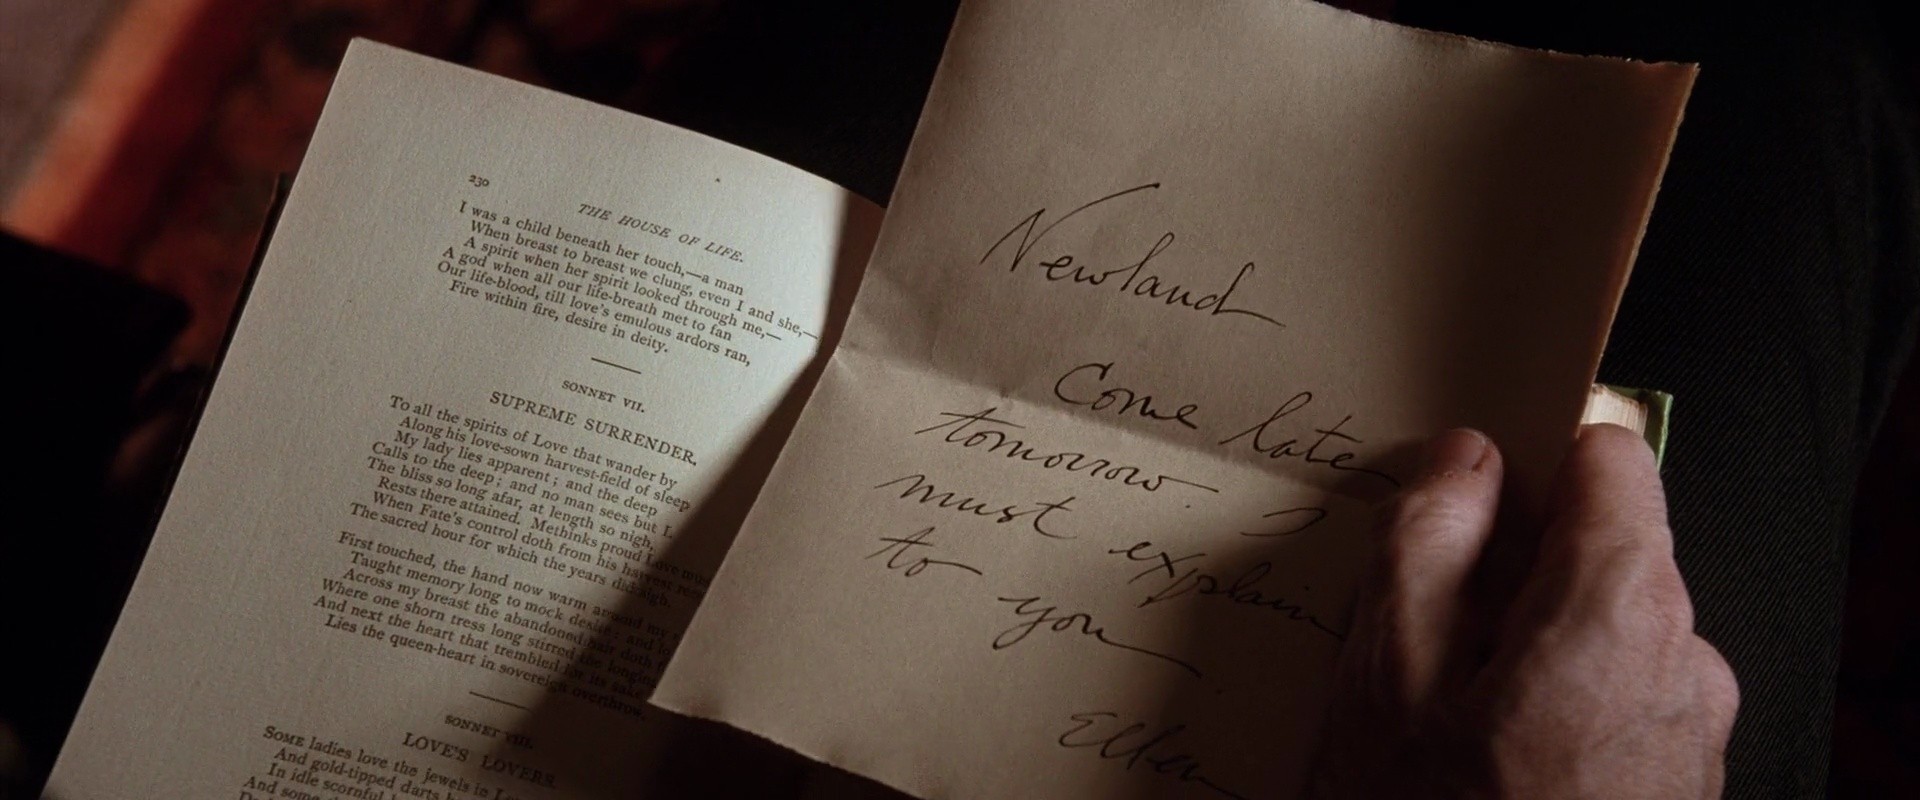 230
THE HOUSE OF LIFE.
I was a child beneath her touch,—a man
When breast to breast we clung, even I and she,—
A spirit when her spirit looked through me,—
A god when all our life-breath met to fan
Our life-blood, till love's emulous ardors ran,
Fire within fire, desire in deity.
SONNET VII.
SUPREME SURRENDER.
To all the spirits of Love that wander by
Along his love-sown harvest-field of sleep
My lady lies apparent; and the deep
Calls to the deep; and no man sees but I.
The bliss so long afar, at length so nigh,
Rests there attained. Methinks proud Love must
When Fate's control doth from his harvest
The sacred hour for which the years did sigh.
First touched, the hand now warm around my
Taught memory long to mock desire: and lo
Across my breast the abandoned hair doth
Where one shorn tress long stirred the longing
And next the heart that trembled for its sake
Lies the queen-heart in sovereign overthrow.
SONNET VIII.
LOVE'S LOVERS.
SOME ladies love the jewels in
And gold-tipped darts
In idle scornful
And some
Newland
Come late
tomorrow. I
must explain
to you
Ellen